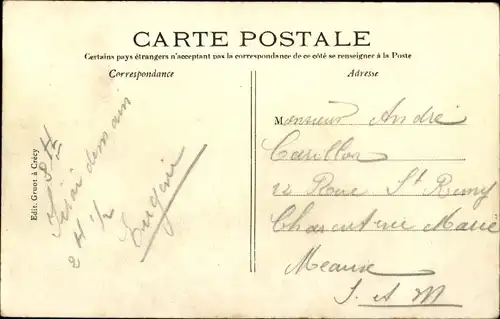 CARTE POSTALE
Certains pays étrangers n'acceptant pas la correspondance de ce côté se renseigner à la Poste
Correspondance
Adresse
Edit. Gruot à Crécy
demain
2 H 1/2
Eugène
Monsieur André
Carillon
12 Rue St Remy
Meaux
S. et M